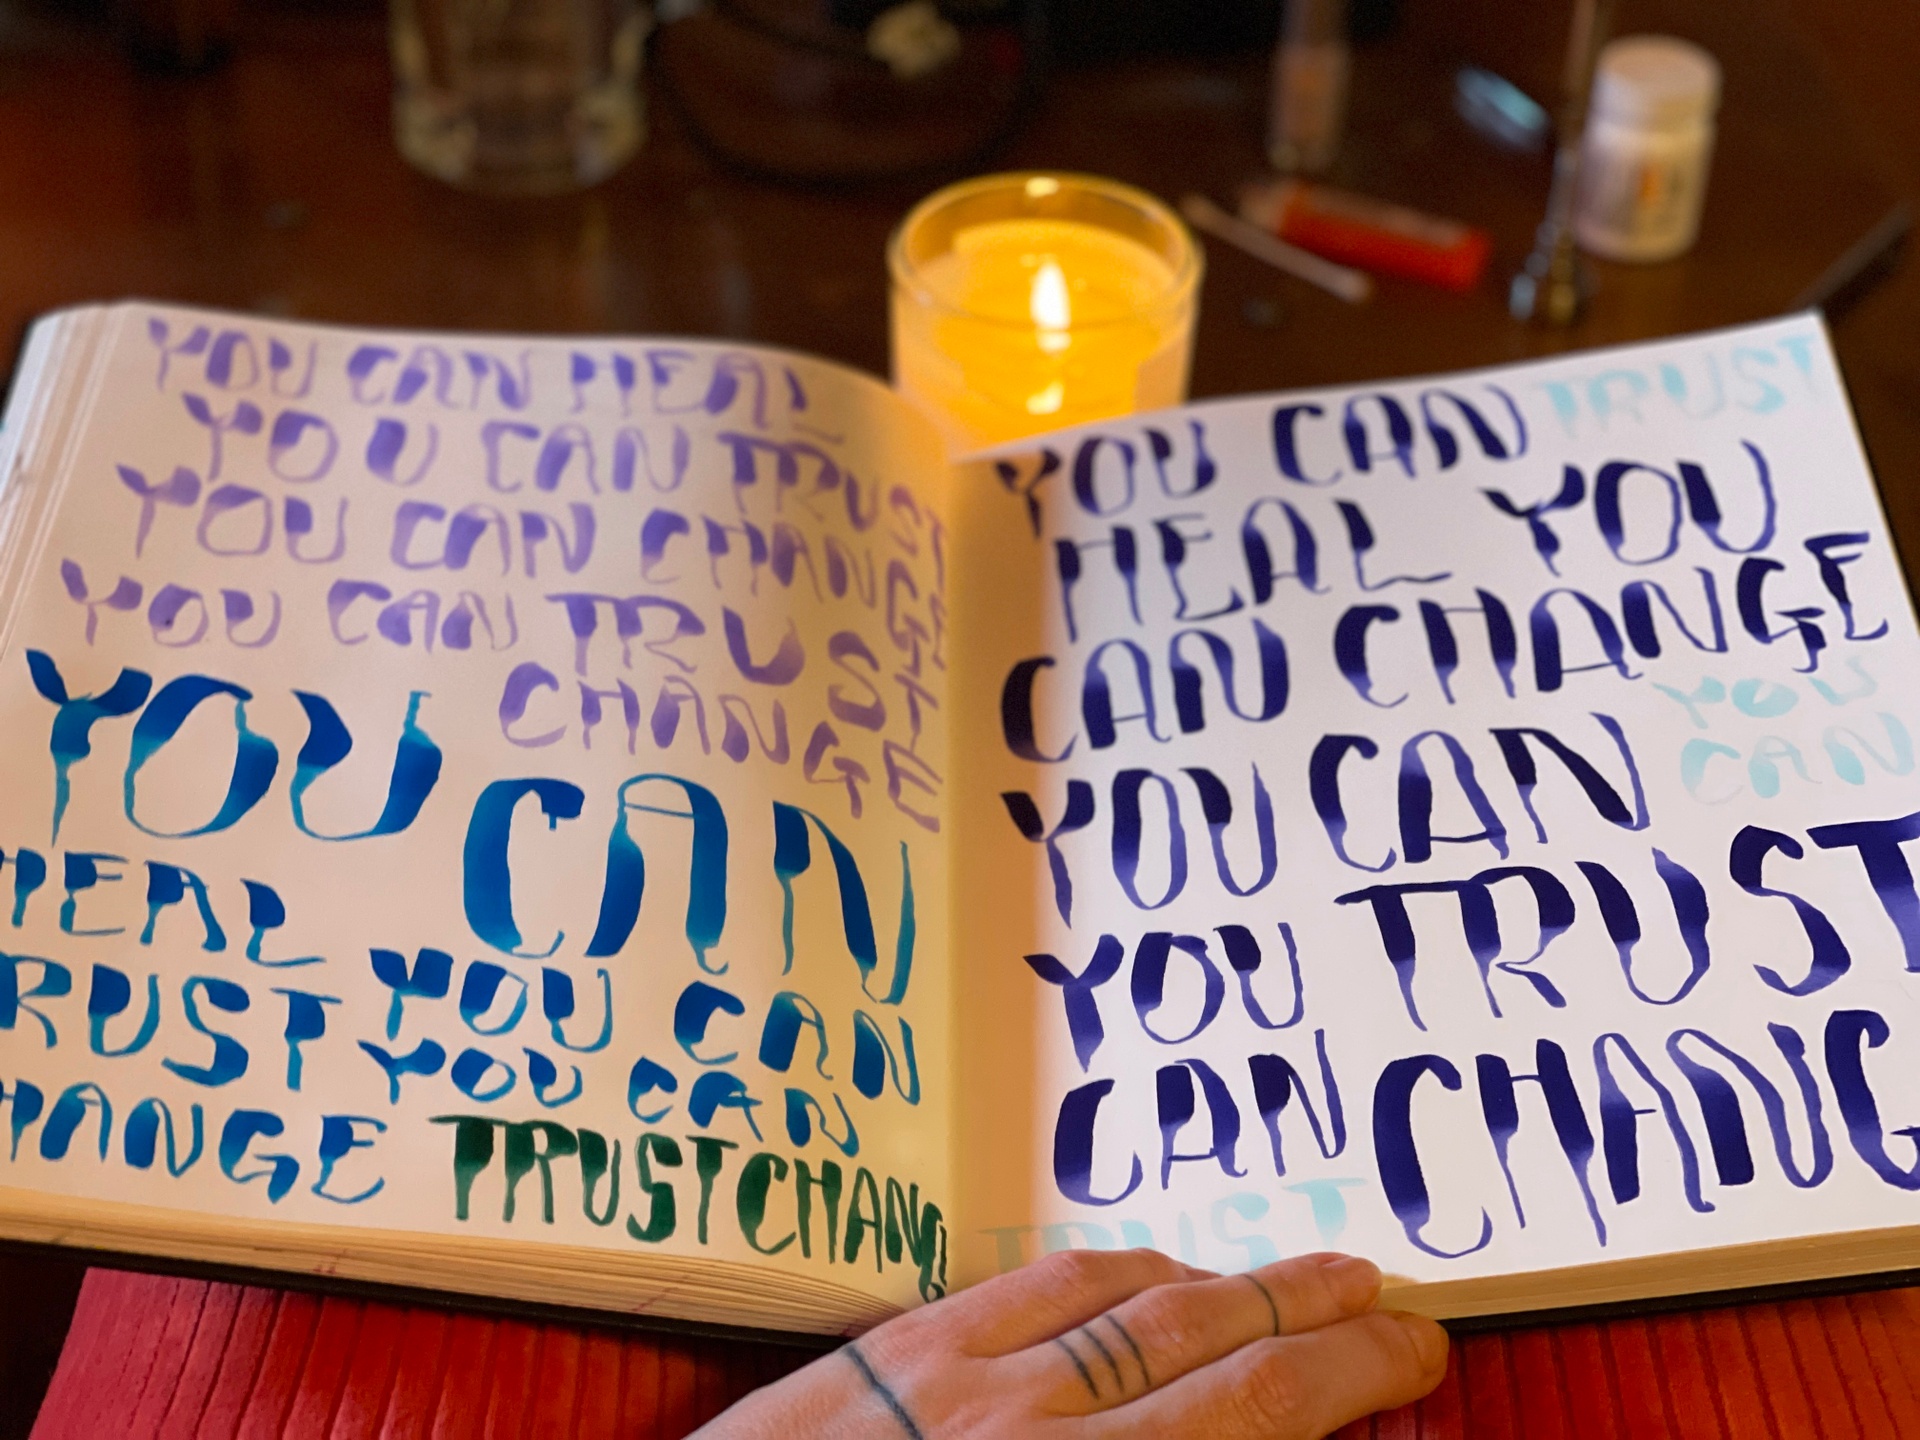 YOU CAN HEAL
YOU CAN TRUST
YOU CAN CHANGE
YOU CAN TRUST
CHANGE
YOU CAN
HEAL
TRUST YOU CAN
CHANGE YOU CAN
TRUST CHANG
YOU CAN TRUST
HEAL YOU
CAN CHANGE
YOU CAN YOU
CAN
YOU TRUST
CAN CHANG
TRUST